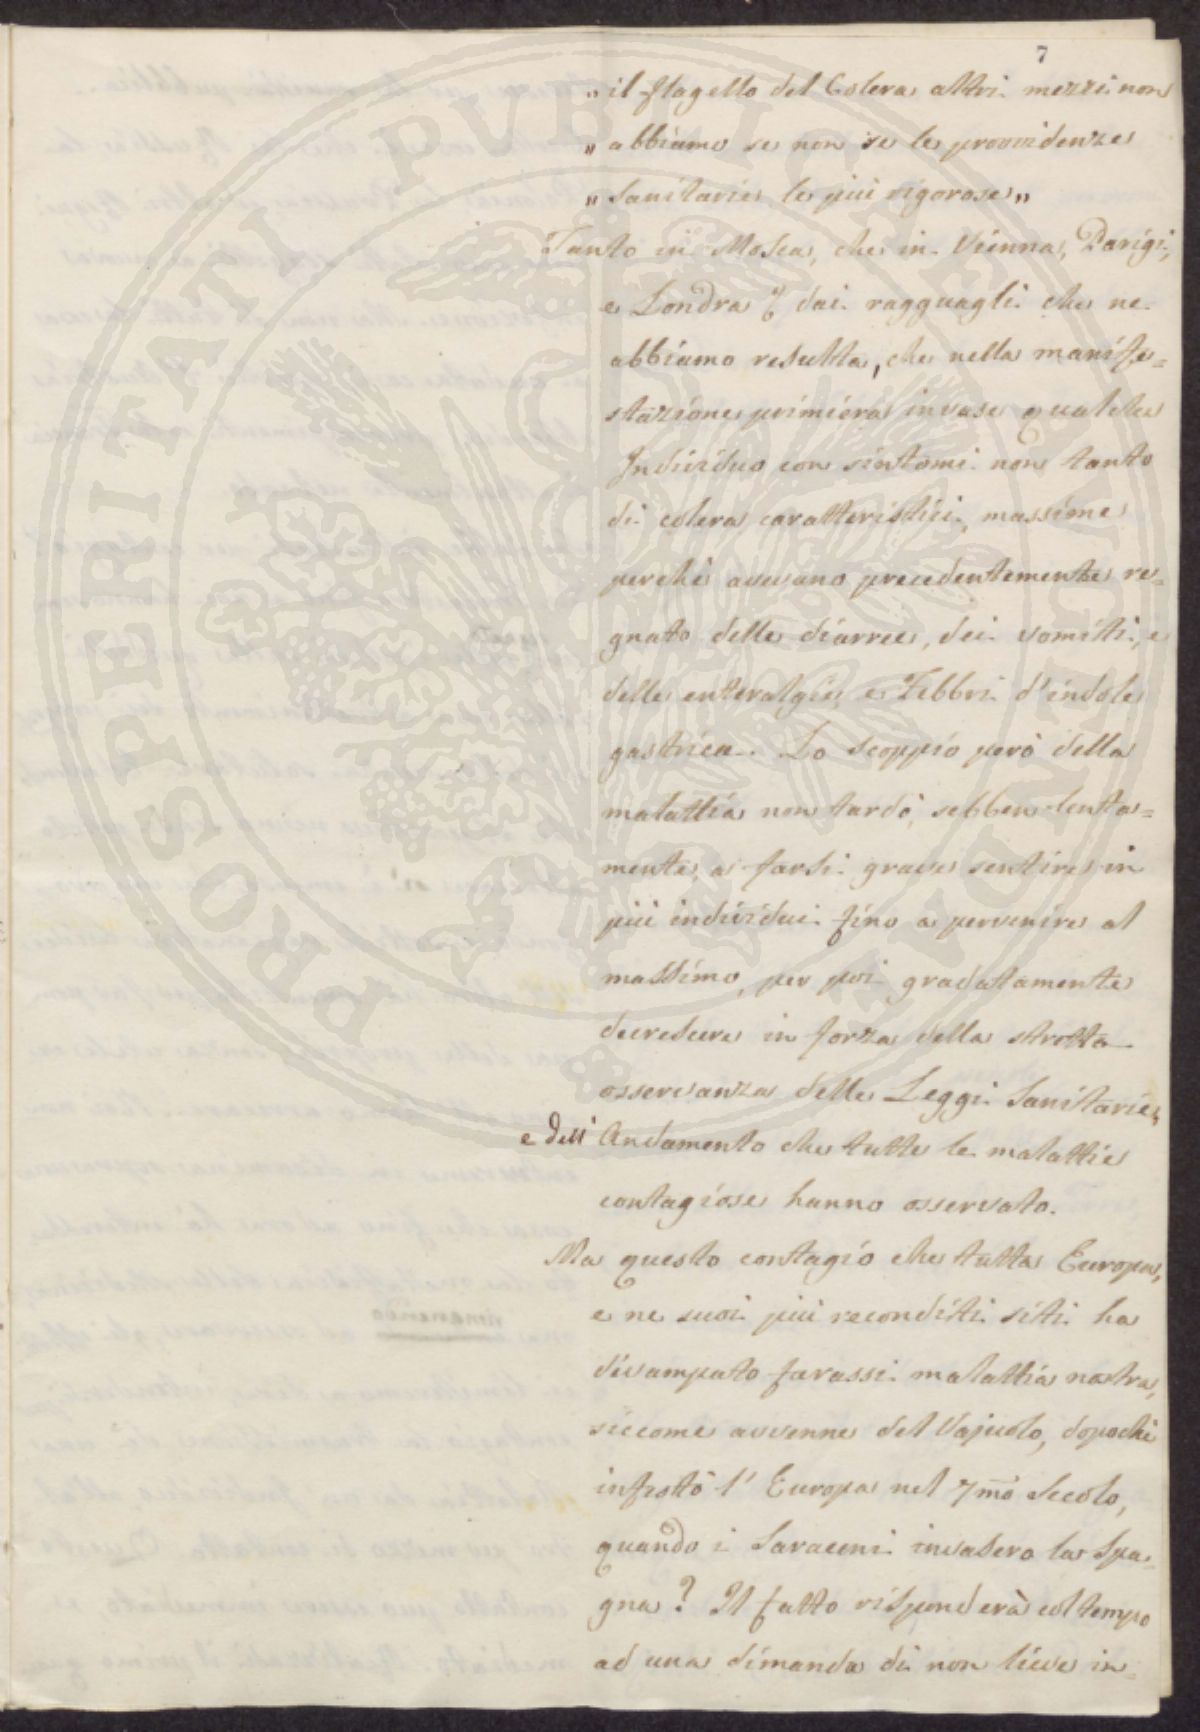 7
„ il flagello del Colera altri mezzi non
„ abbiamo se non se le provvidenze
„ Sanitarie le più rigorose„
Tanto in Mosca, che in Vienna, Parigi,
e Londra dai ragguagli che ne
abbiamo resulta, che nella manife=
stazione primiera invase qualche
Individuo con sintomi non tanto
di colera caratteristici, massime
perchè avevano precedentemente re=
gnato delle diarree, dei vomiti, e
delle enteralgie e Febbri d'indole
gastrica. Lo scoppio però della
malattia non tardò, sebben lenta=
mente, a farsi grave sentire in
più individui fino a pervenire al
massimo, per poi gradatamente
decrescere in forza della stretta
osservanza delle Leggi Sanitarie,
e dell' Andamento che tutte le malattie
contagiose hanno osservato.
Ma questo contagio che tutta Europa,
e ne suoi più reconditi siti ha
divampato farassi malattia nostra,
siccome avvenne del Vajuolo, dopochè
infestò l'Europa nel 7mo Secolo,
quando i Saraceni invasero la Spa=
gna? Il fatto risponderà col tempo
ad una dimanda di non lieve in=
PROSPERITATI PUBLICAE